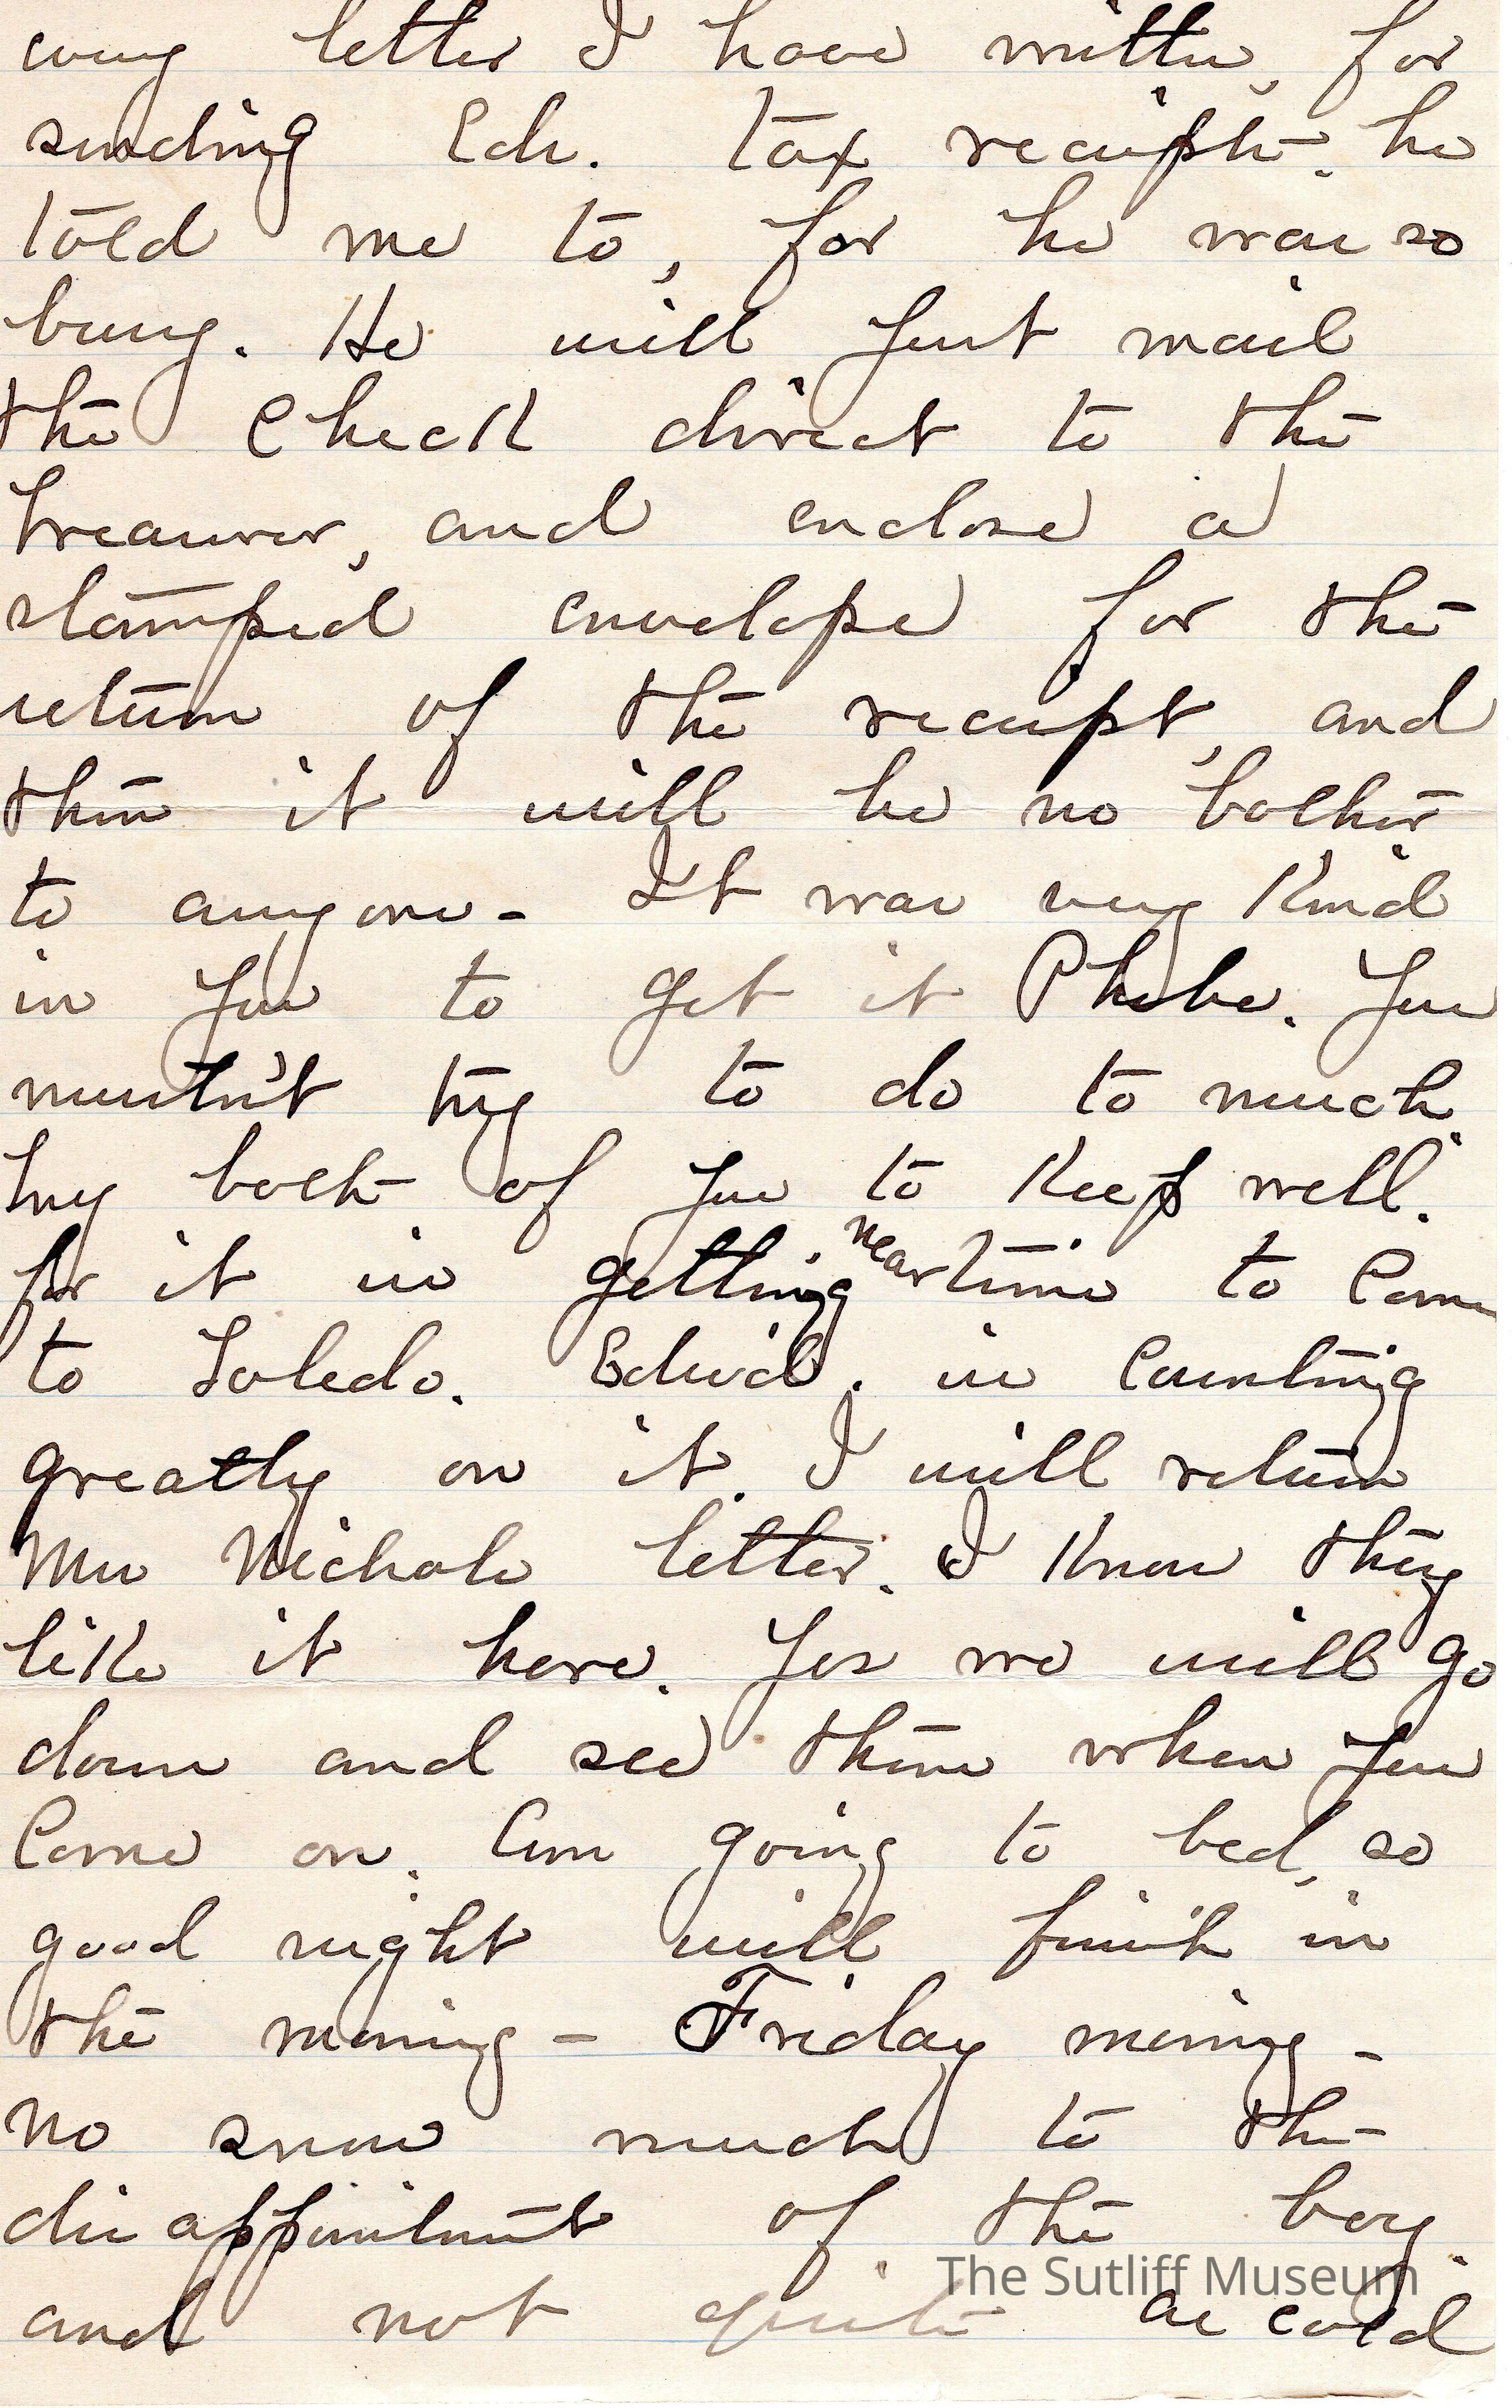 every letter I have written, for
sending Edw. tax receipt. he
told me to, for he was so
busy. He will just mail
the check direct to the
treasurer, and enclose a
stamped envelope for the
return of the receipt, and
then it will be no bother
to anyone - It was very kind
in you to get it Phebe. You
mustn't try to do to much.
try both of you to keep well.
for it is getting near time to come
to Toledo. Edwd. is counting
greatly on it. I will return
Mrs Nichols letter. I know they
like it here. Yes we will go
down and see them when you
come on. Am going to bed, so
good night will finish in
the morning - Friday morning -
no snow much to the
disappointment of the boys.
and not quite as cold
The Sutliff Museum